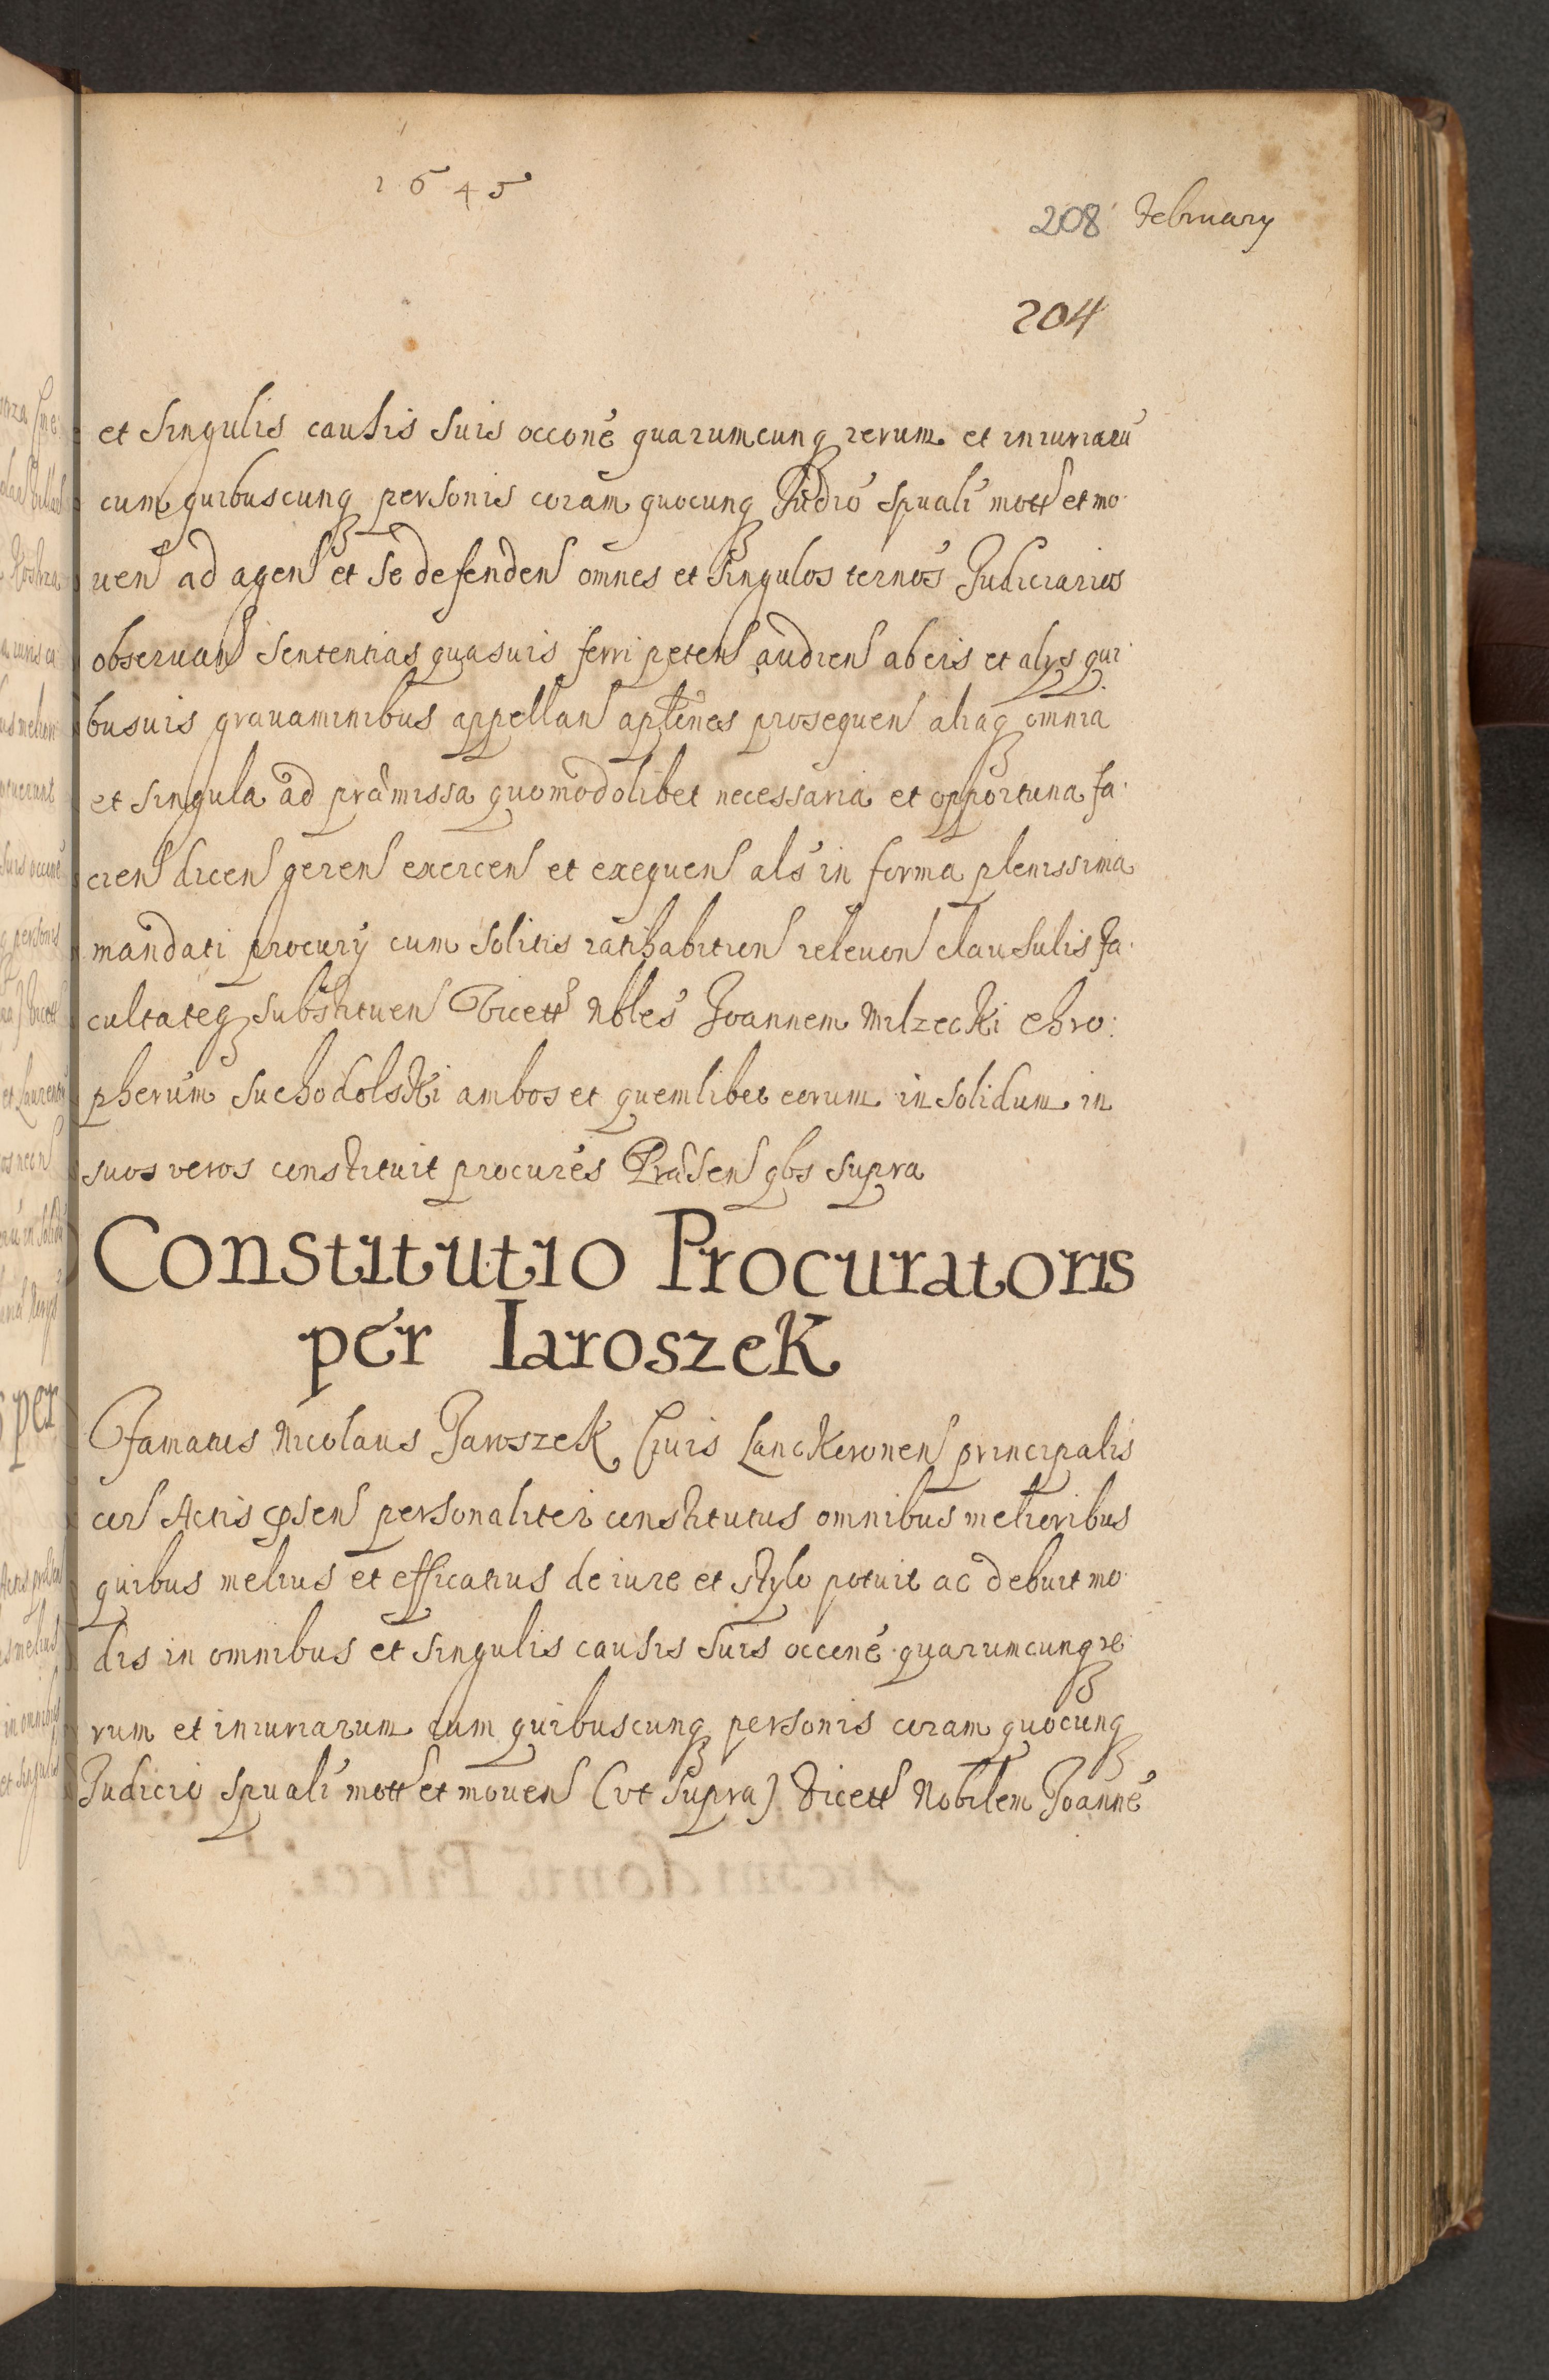 1645
208 February
204
et singulis causis suis occone quarumcunq rerum et iniuriaru
cum quibuscunq personis coram quocunq Judio spuali mott et mo
uen ad agen et se defenden omnes et singulos ternos Judiciarios
obseruan sententias quasuis ferri peten audien ab eis et alys qui
busuis grauaminibus appellan aplones prosequen aliaq omnia
et singula ad præmissa quomodolibet necessaria et opportuna fa
cien dicen geren exercen et exequen als in forma plenissima
mandati procury cum solitis ratihabition releuon clausulis Fa
cultateq substituen Vicett Nbles Joannem Milzecki Chro
pherum Suchodolski ambos et quemlibet eorum in solidum in
suos veros constituit procures Præsen qbs supra
Constitutio Procuratoris
per Iaroszek
Famatus Nicolaus Jaroszek Ciuis Lanckoronen principalis
cor Actis psen personaliter constitutus omnibus melioribus
quibus melius et efficatius de iure et stylo potuit ac debuit mo
dis in omnibus et singulis causis suis occone quarumcunq re
rum et iniuriarum cum quibuscunq personis coram quocunq
Judicio spuali mott et mouen (vt supra) Vicett Nobilem Joanne